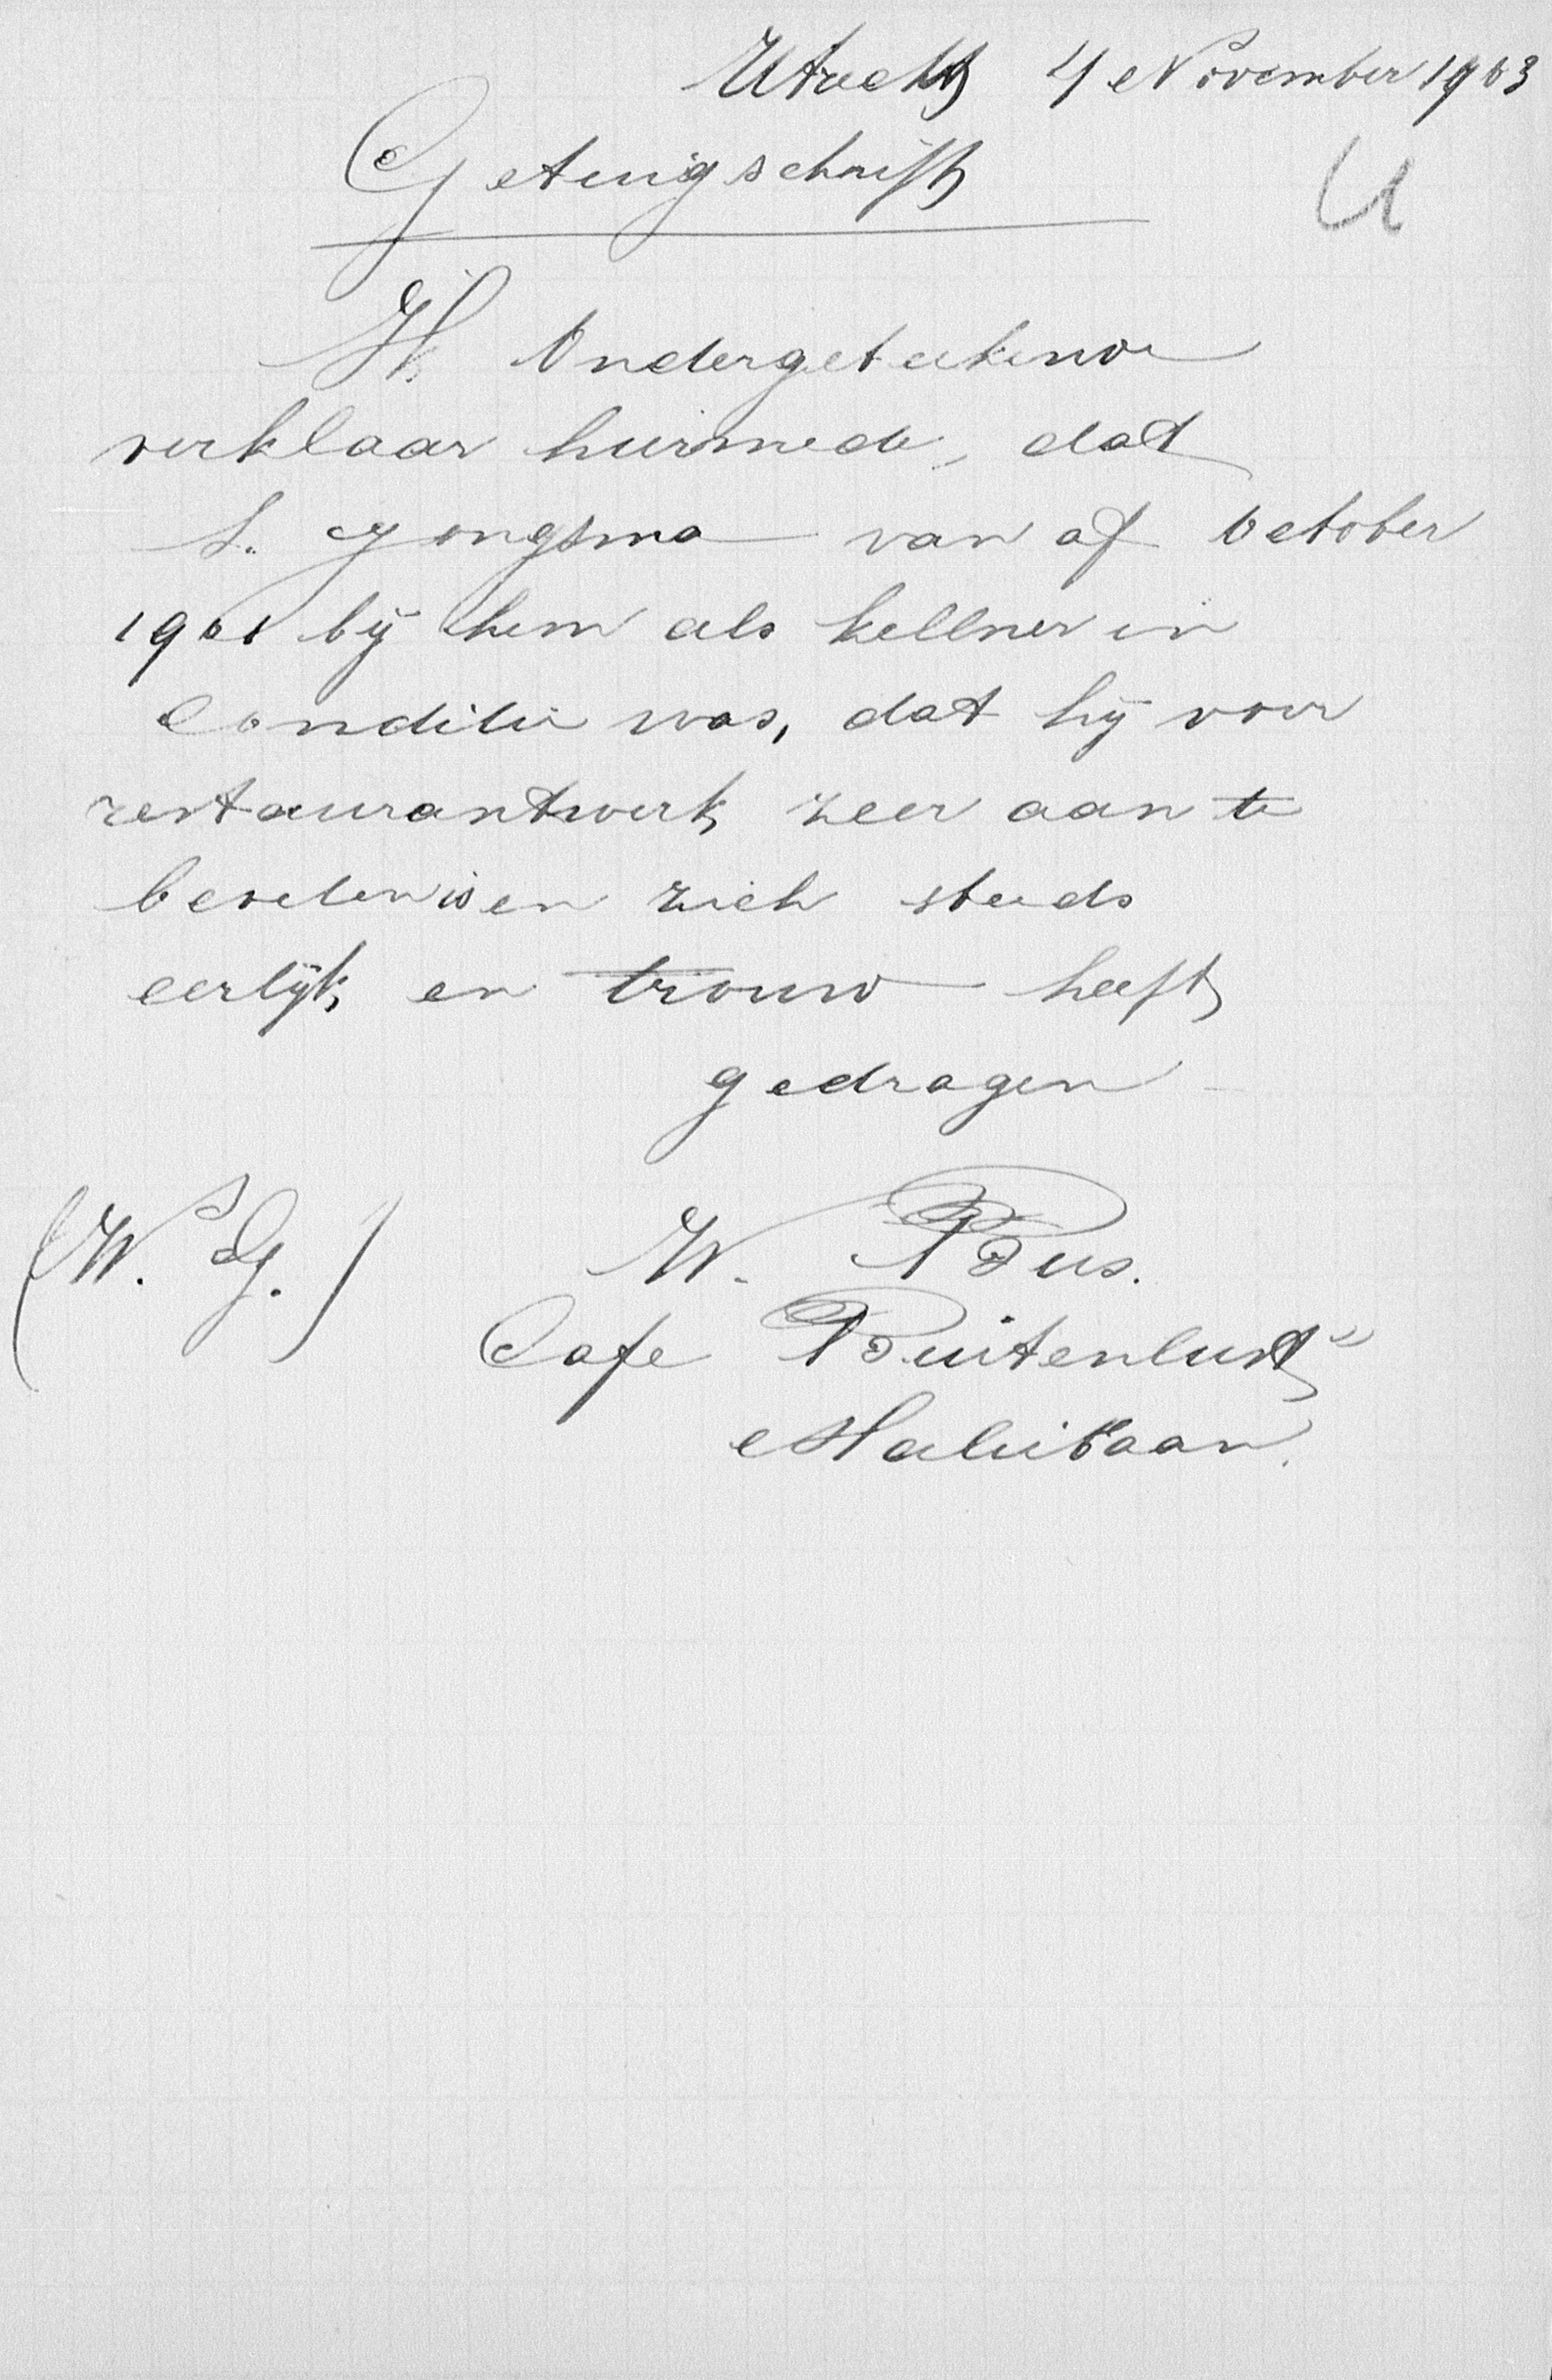 Utrecht 4 November 1903
Getuigschrift
U
Ondergeteekende
verklaar hiermede, dat
S. Jongsma van af October
1901 bij hem als kellner in
Conditie was, dat hij voor
restaurantwerk zeer aan te
bevelen is en zich steeds
eerlijk en trouw heeft
gedragen
(W. G.) W. Bus.
Cafe Buitenlust"
Maliebaan.